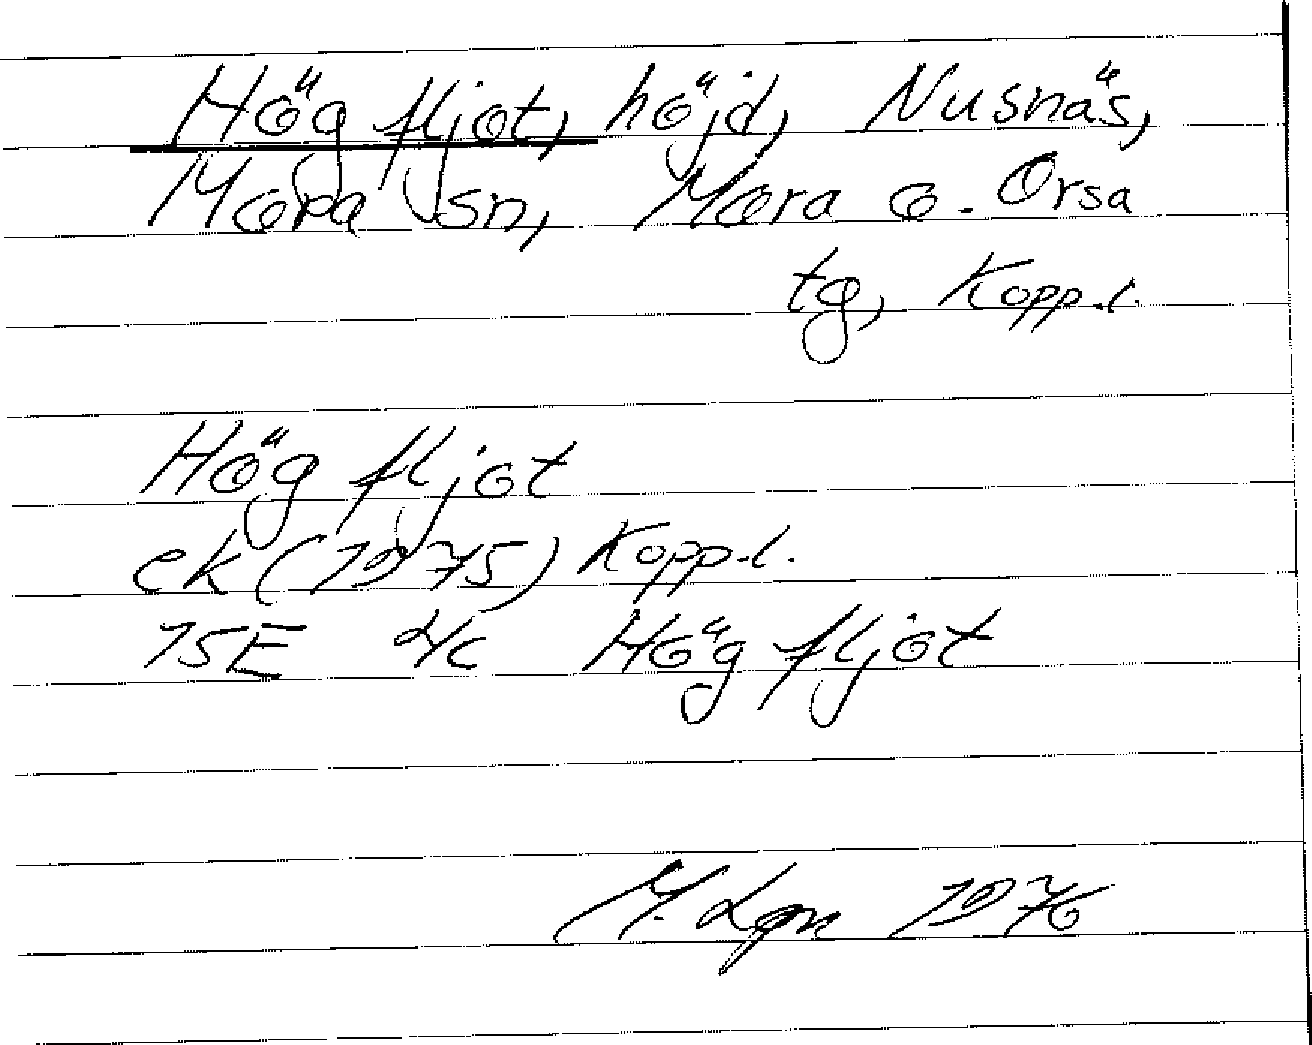 Hög fljot, höjd, Nusnäs,
Mora sn, Mora o. Orsa
tg, Kopp.l.
Hög fljot
ek (1975) Kopp.l.
15E 4c Hög fljot
M. Lgn 1976